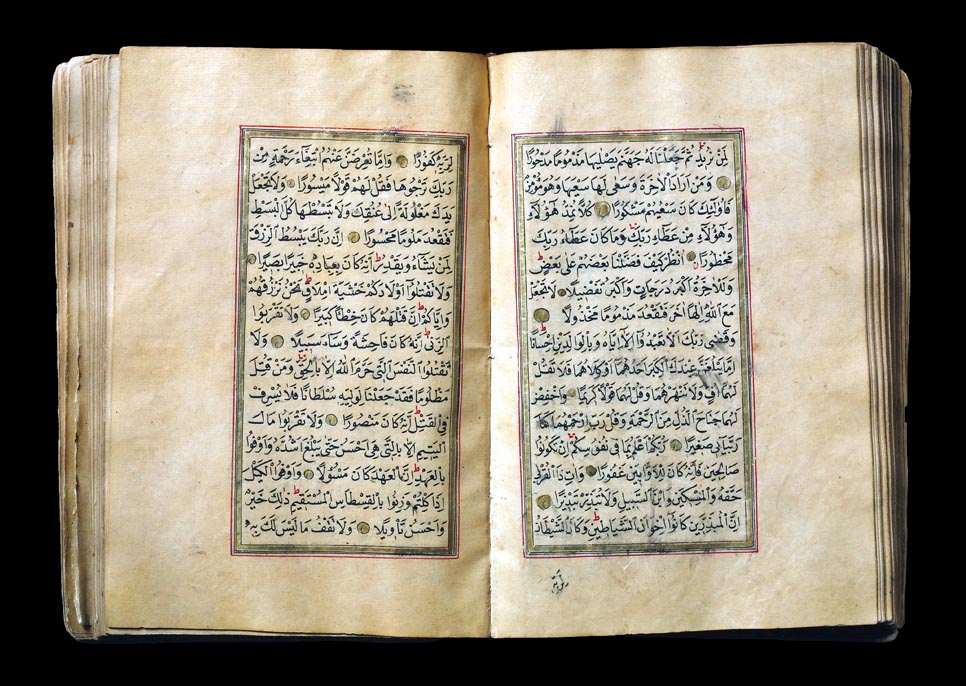 لِمَنْ نُرِيدُ ثُمَّ جَعَلْنَا لَهُ جَهَنَّمَ يَصْلٰيهَا مَذْمُومًا مَدْحُورًا
وَمَنْ اَرَادَ الْاٰخِرَةَ وَسَعٰى لَهَا سَعْيَهَا وَهُوَ مُؤْمِنٌ
فَاُولٰئِكَ كَانَ سَعْيُهُمْ مَشْكُورًا كُلًّا نُمِدُّ هٰؤُلَاءِ
وَهٰؤُلَاءِ مِنْ عَطَاءِ رَبِّكَ وَمَا كَانَ عَطَاءُ رَبِّكَ
مَحْظُورًا اُنْظُرْ كَيْفَ فَضَّلْنَا بَعْضَهُمْ عَلٰى بَعْضٍ
وَلَلْاٰخِرَةُ اَكْبَرُ دَرَجَاتٍ وَاَكْبَرُ تَفْضِيلًا لَا تَجْعَلْ
مَعَ اللّٰهِ اِلٰهًا اٰخَرَ فَتَقْعُدَ مَذْمُومًا مَخْذُولًا
وَقَضٰى رَبُّكَ اَلَّا تَعْبُدُوا اِلَّا اِيَّاهُ وَبِالْوَالِدَيْنِ اِحْسَانًا
اِمَّا يَبْلُغَنَّ عِنْدَكَ الْكِبَرَ اَحَدُهُمَا اَوْ كِلَاهُمَا فَلَا تَقُلْ
لَهُمَا اُفٍّ وَلَا تَنْهَرْهُمَا وَقُلْ لَهُمَا قَوْلًا كَرِيمًا وَاخْفِضْ
لَهُمَا جَنَاحَ الذُّلِّ مِنَ الرَّحْمَةِ وَقُلْ رَبِّ ارْحَمْهُمَا كَمَا
رَبَّيَانِي صَغِيرًا رَبُّكُمْ اَعْلَمُ بِمَا فِي نُفُوسِكُمْ اِنْ تَكُونُوا
صَالِحِينَ فَاِنَّهُ كَانَ لِلْاَوَّابِينَ غَفُورًا وَاٰتِ ذَا الْقُرْبٰى
حَقَّهُ وَالْمِسْكِينَ وَابْنَ السَّبِيلِ وَلَا تُبَذِّرْ تَبْذِيرًا
اِنَّ الْمُبَذِّرِينَ كَانُوا اِخْوَانَ الشَّيَاطِينِ وَكَانَ الشَّيْطَانُ
لِرَبِّهِ
لِرَبِّهِ كَفُورًا وَاِمَّا تُعْرِضَنَّ عَنْهُمُ ابْتِغَاءَ رَحْمَةٍ مِنْ
رَبِّكَ تَرْجُوهَا فَقُلْ لَهُمْ قَوْلًا مَيْسُورًا وَلَا تَجْعَلْ
يَدَكَ مَغْلُولَةً اِلٰى عُنُقِكَ وَلَا تَبْسُطْهَا كُلَّ الْبَسْطِ
فَتَقْعُدَ مَلُومًا مَحْسُورًا اِنَّ رَبَّكَ يَبْسُطُ الرِّزْقَ
لِمَنْ يَشَاءُ وَيَقْدِرُ اِنَّهُ كَانَ بِعِبَادِهِ خَبِيرًا بَصِيرًا
وَلَا تَقْتُلُوا اَوْلَادَكُمْ خَشْيَةَ اِمْلَاقٍ نَحْنُ نَرْزُقُهُمْ
وَاِيَّاكُمْ اِنَّ قَتْلَهُمْ كَانَ خِطْأً كَبِيرًا وَلَا تَقْرَبُوا
الزِّنٰى اِنَّهُ كَانَ فَاحِشَةً وَسَاءَ سَبِيلًا وَلَا
تَقْتُلُوا النَّفْسَ الَّتِي حَرَّمَ اللّٰهُ اِلَّا بِالْحَقِّ وَمَنْ قُتِلَ
مَظْلُومًا فَقَدْ جَعَلْنَا لِوَلِيِّهِ سُلْطَانًا فَلَا يُسْرِفْ
فِي الْقَتْلِ اِنَّهُ كَانَ مَنْصُورًا وَلَا تَقْرَبُوا مَالَ
الْيَتِيمِ اِلَّا بِالَّتِي هِيَ اَحْسَنُ حَتّٰى يَبْلُغَ اَشُدَّهُ وَاَوْفُوا
بِالْعَهْدِ اِنَّ الْعَهْدَ كَانَ مَسْئُولًا وَاَوْفُوا الْكَيْلَ
اِذَا كِلْتُمْ وَزِنُوا بِالْقِسْطَاسِ الْمُسْتَقِيمِ ذٰلِكَ خَيْرٌ
وَاَحْسَنُ تَأْوِيلًا وَلَا تَقْفُ مَا لَيْسَ لَكَ بِهِ